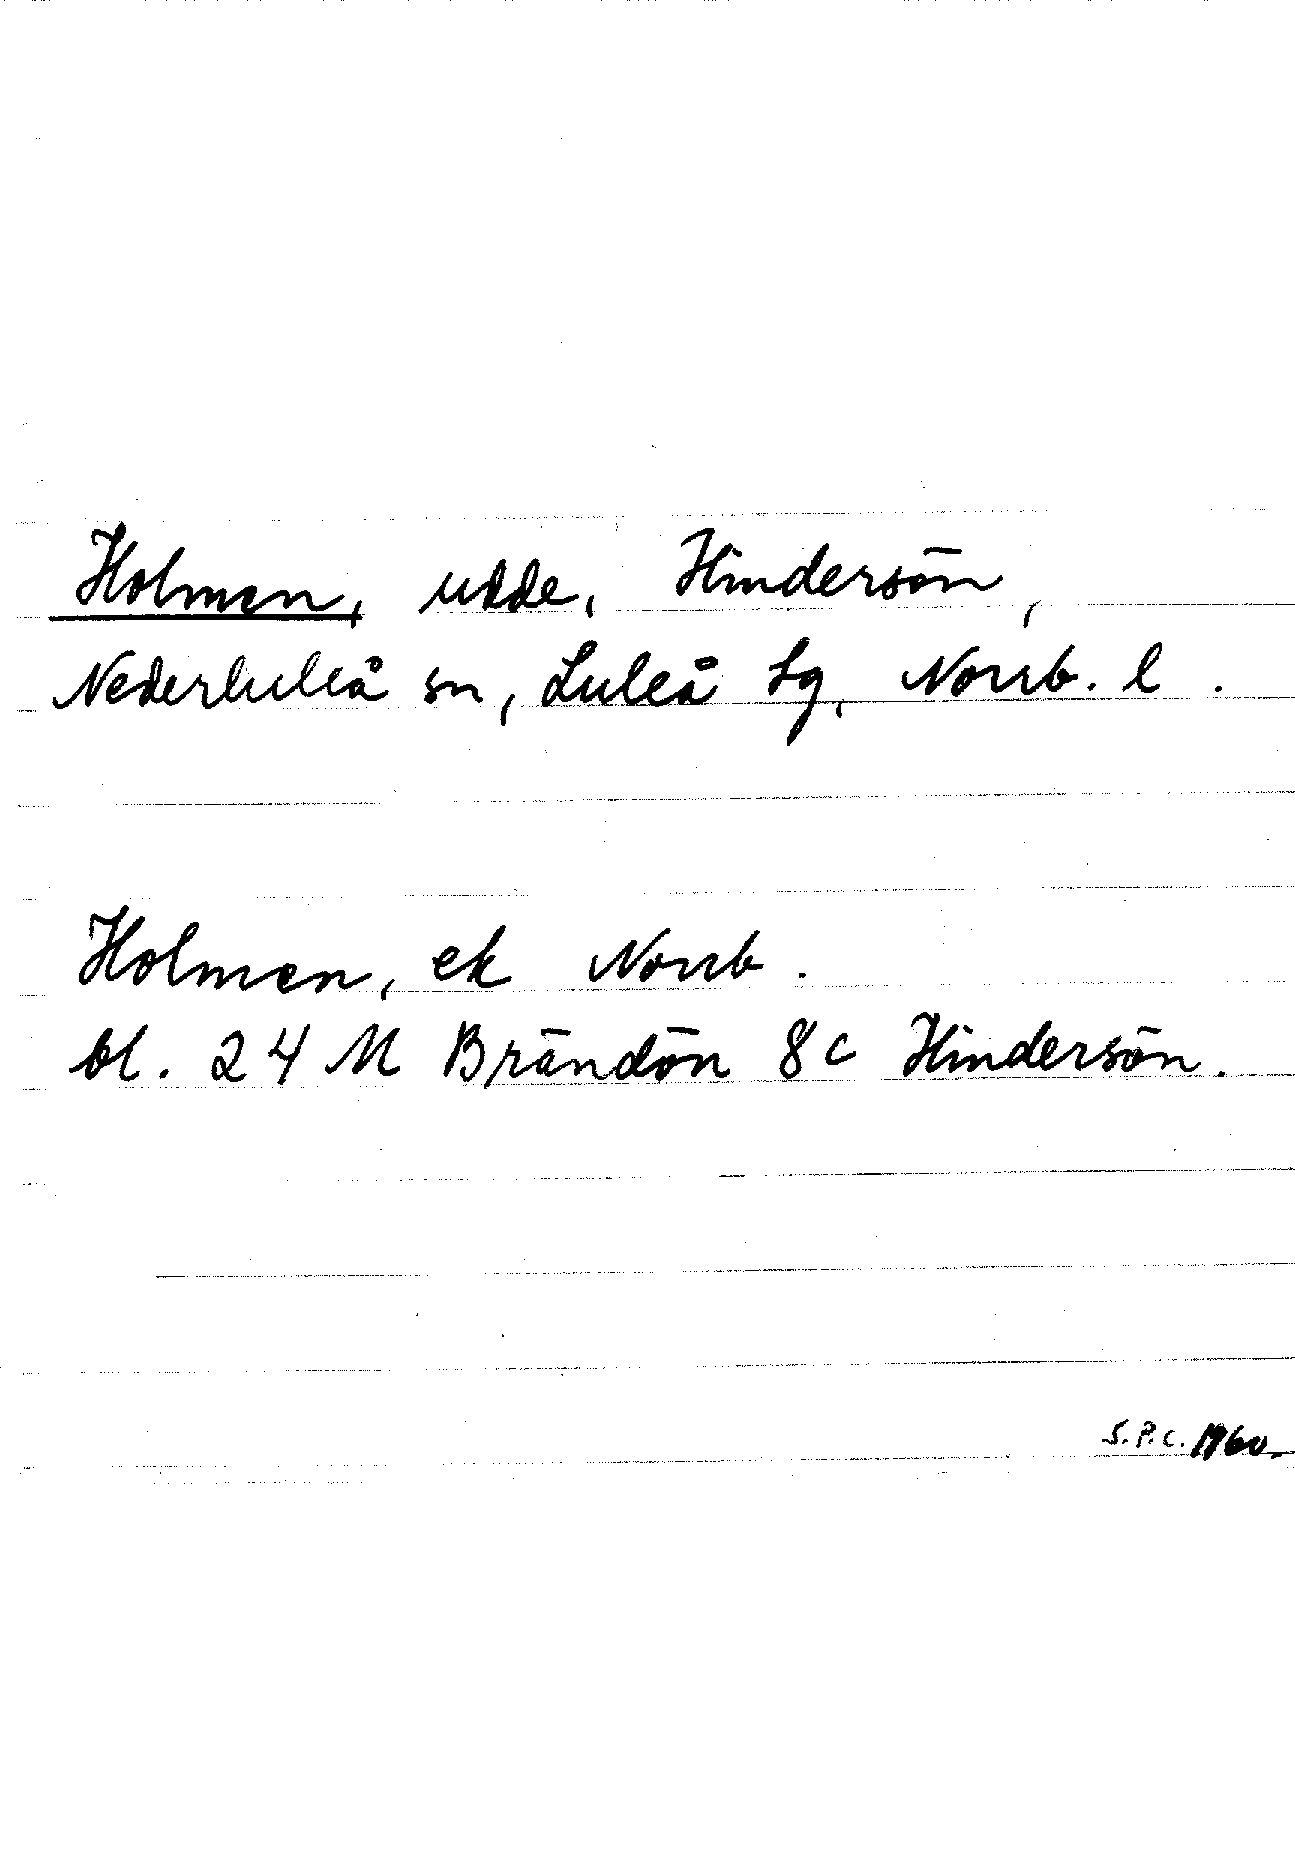 Holmen, udde, Hindersön,
Nederluleå sn, Luleå tg, Norrb. l.
Holmen, ek Norrb.
bl. 24 M Brändön 8c Hindersön.
S.P.C. 1960